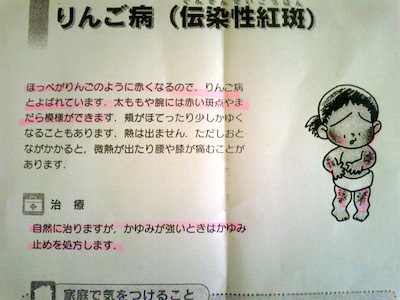 りんご病（伝染性紅斑）
ほっぺがりんごのように赤くなるので，りんご病
とよばれています．太ももや腕には赤い斑点やま
だら模様ができます．頬がほてったり少しかゆく
なることもあります．熱は出ません．ただしおと
ながかかると，微熱が出たり腰や膝が痛むことが
あります．
治　療
自然に治りますが，かゆみが強いときはかゆみ
止めを処方します．
家庭で気をつけること